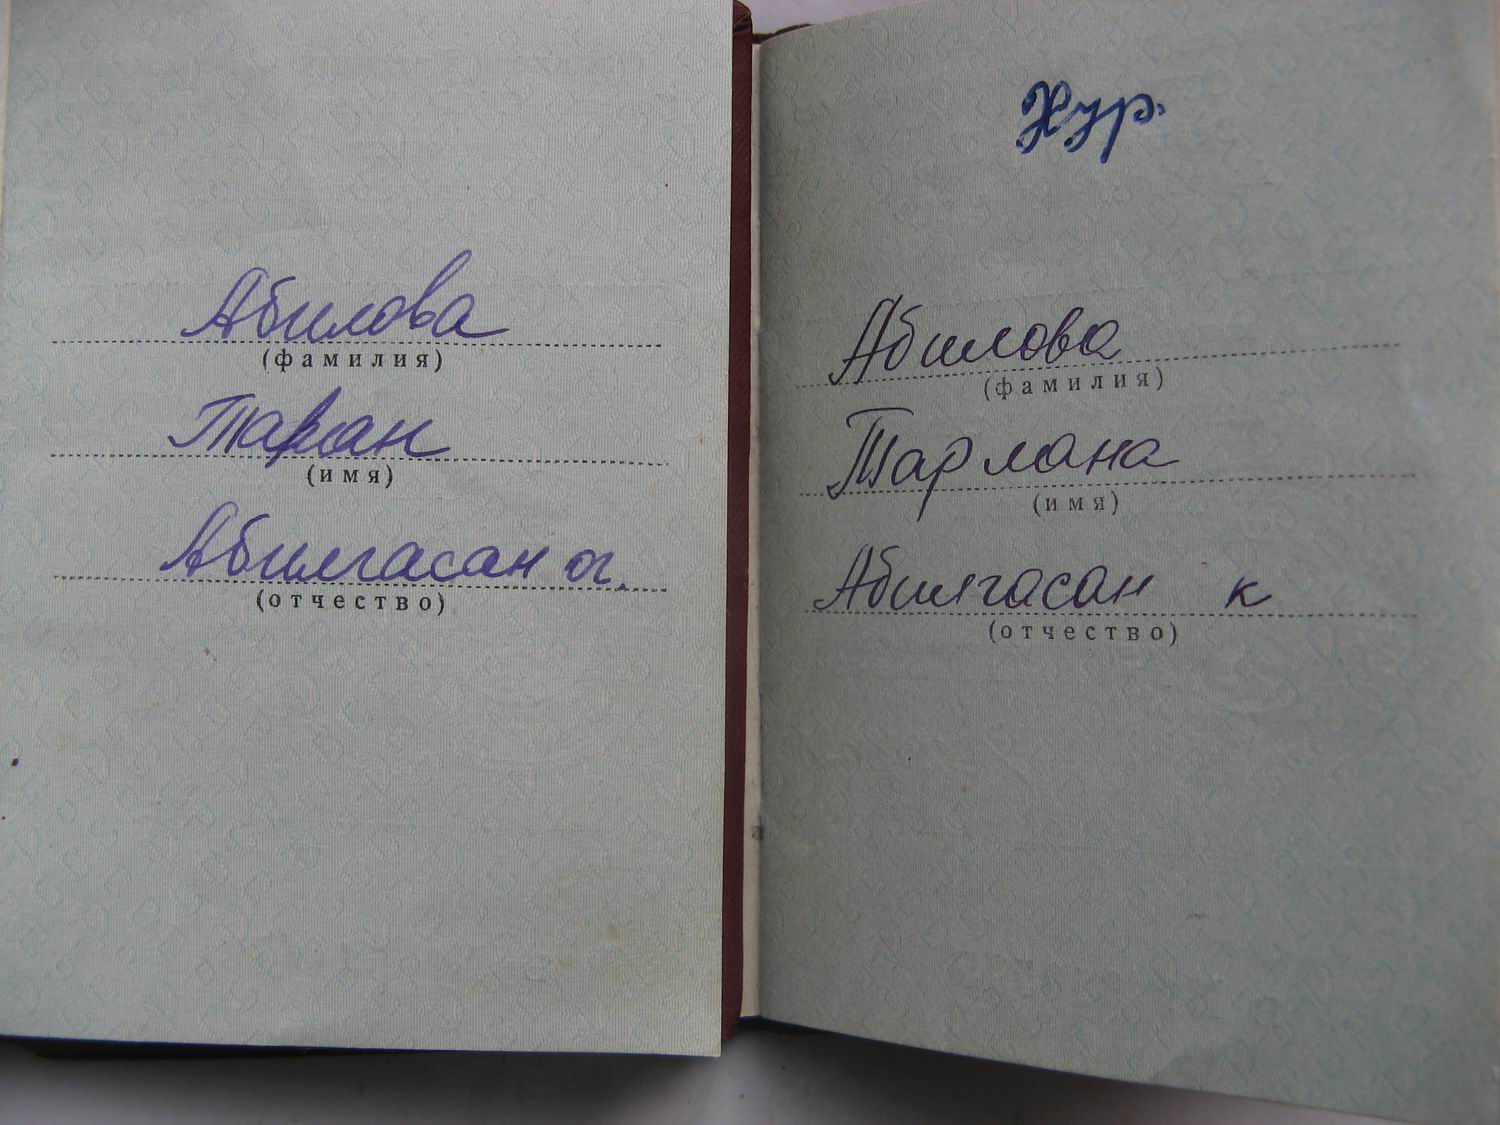 Абилова
(фамилия)
Таран
(имя)
Абилгасан ог.
(отчество)
Хур.
Абилова
(фамилия)
Тарлана
(имя)
Абилгасан к
(отчество)